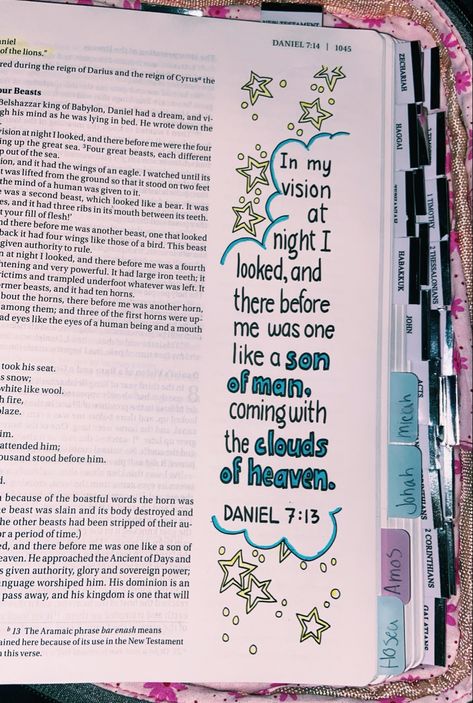 DANIEL 7:14 | 1045
aniel
of the lions."
red during the reign of Darius and the reign of Cyrus a the
our Beasts
Belshazzar king of Babylon, Daniel had a dream, and vi-
gh his mind as he was lying in bed. He wrote down the
vision at night I looked, and there before me were the four
ing up the great sea. 3Four great beasts, each different
p out of the sea.
ion, and it had the wings of an eagle. I watched until its
t was lifted from the ground so that it stood on two feet
the mind of a human was given to it.
e was a second beast, which looked like a bear. It was
es, and it had three ribs in its mouth between its teeth.
t your fill of flesh!'
nd there before me was another beast, one that looked
back it had four wings like those of a bird. This beast
given authority to rule.
n at night I looked, and there before me was a fourth
htening and very powerful. It had large iron teeth; it
victims and trampled underfoot whatever was left. It
rmer beasts, and it had ten horns.
bout the horns, there before me was another horn,
among them; and three of the first horns were up-
ad eyes like the eyes of a human being and a mouth
took his seat.
s snow;
white like wool.
h fire,
blaze.
im.
attended him;
ousand stood before him.
d.
because of the boastful words the horn was
e beast was slain and its body destroyed and
he other beasts had been stripped of their au-
or a period of time.)
ed, and there before me was one like a son of
eaven. He approached the Ancient of Days and
s given authority, glory and sovereign power;
anguage worshiped him. His dominion is an
pass away, and his kingdom is one that will
b 13 The Aramaic phrase bar enash means
ained here because of its use in the New Testament
n this verse.
In my
vision
at
night I
looked, and
there before
me was one
like a son
of man,
coming with
the clouds
of heaven.
DANIEL 7:13
ZECHARIAH
HAGGAI
HABAKKUK
JOHN
ACTS
micah
Jonah
Amos
Hosea
1 TIMOTHY
2 THESSALONIANS
2 CORINTHIANS
GALATIANS